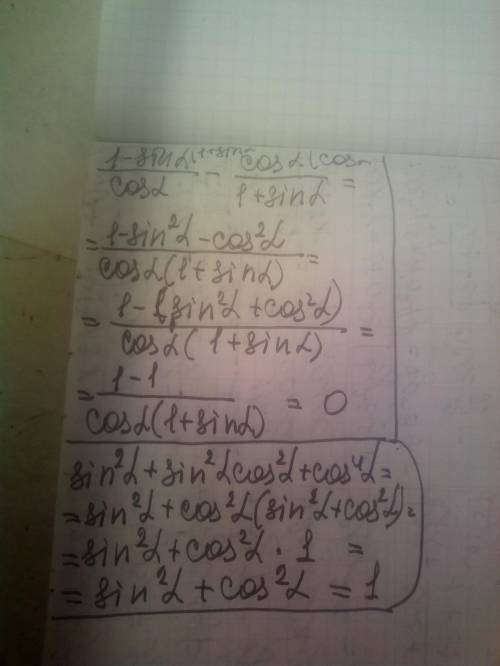 (1-sinα)/cosα (1+sinα - cosα/(1+sinα) (cosα =
= (1-sin²α-cos²α)/(cosα(1+sinα)) =
= (1-(sin²α+cos²α))/(cosα(1+sinα)) =
= (1-1)/(cosα(1+sinα)) = 0
sin²α+sin²αcos²α+cos⁴α=
=sin²α+cos²α(sin²α+cos²α)=
=sin²α+cos²α·1 =
= sin²α+cos²α = 1